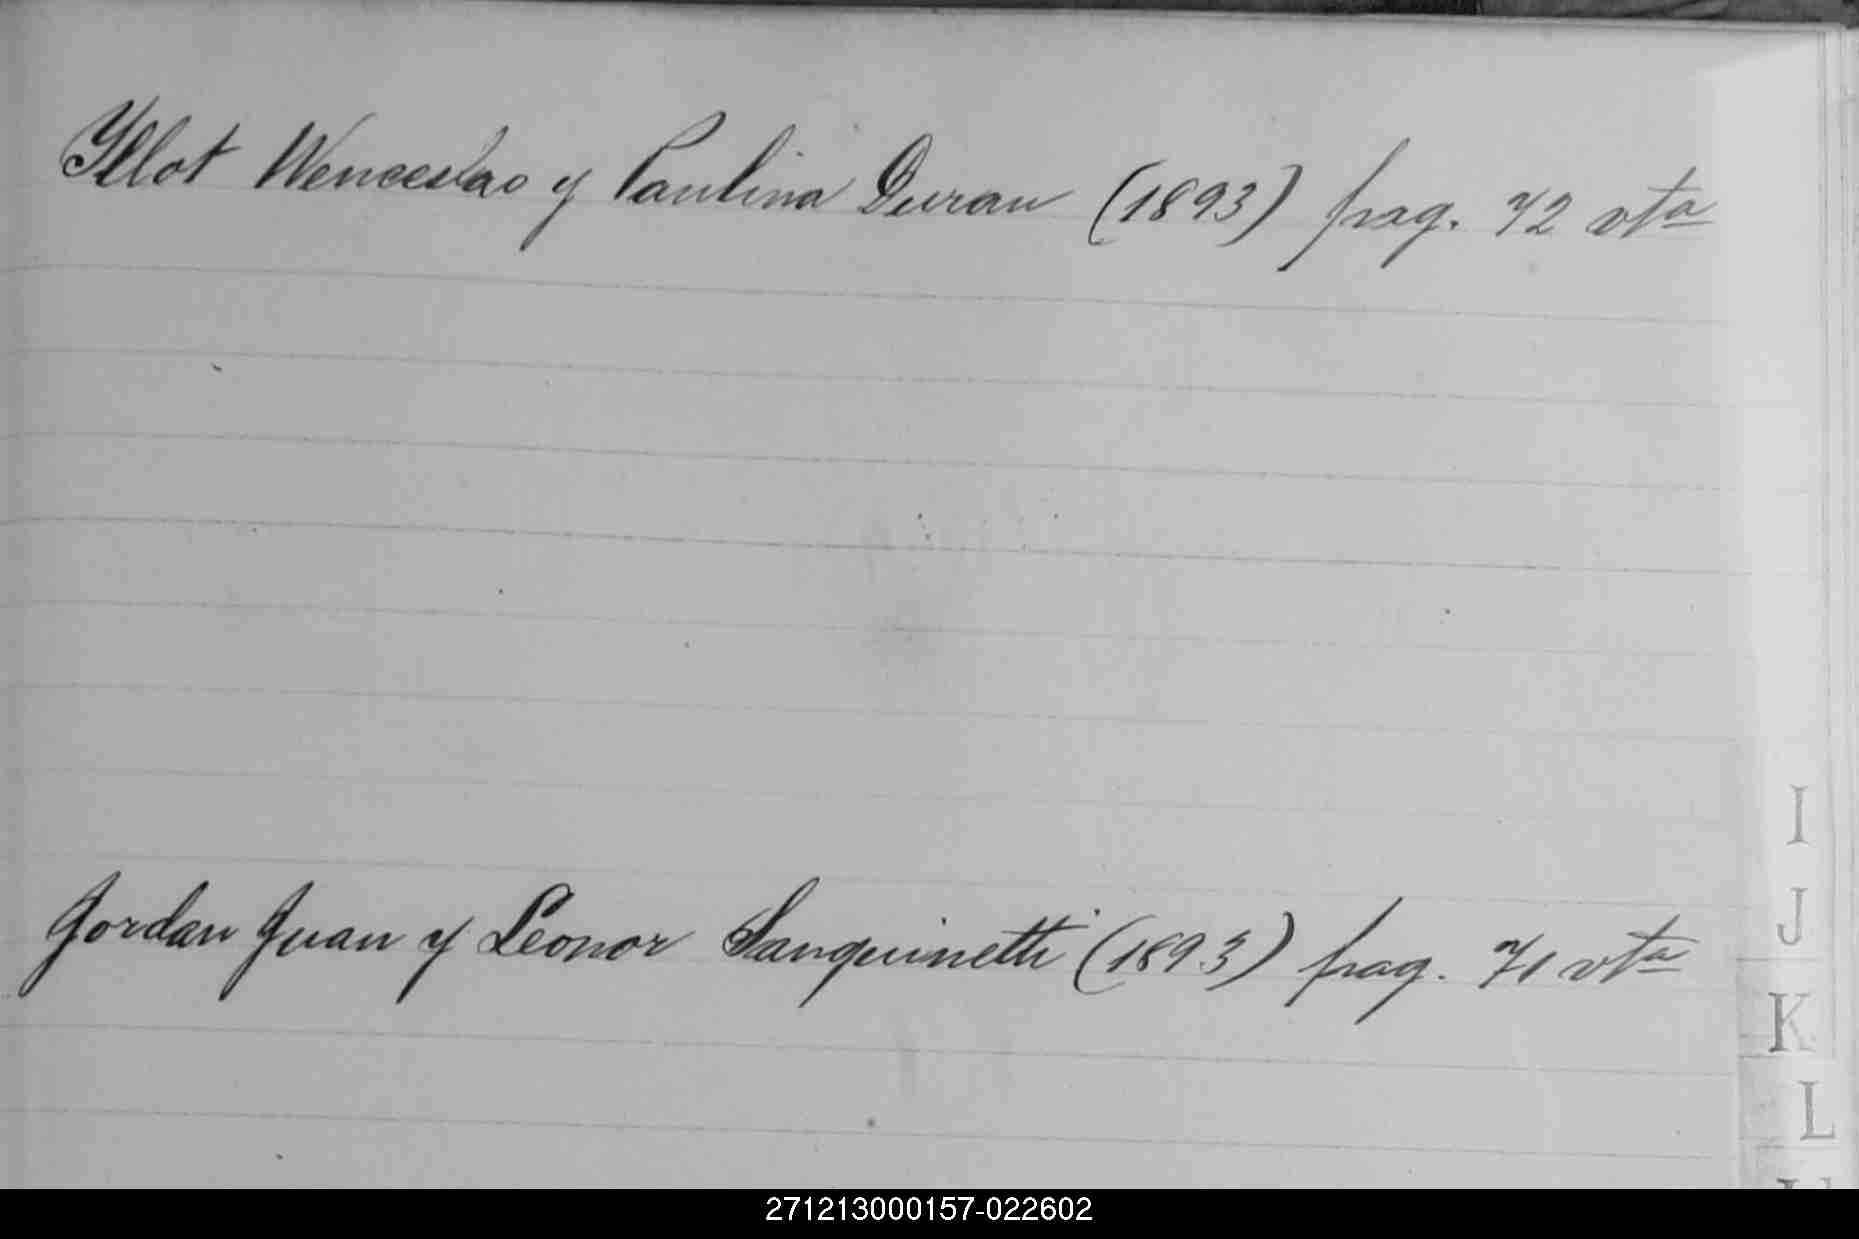 Yllot Wenceslao y Paulina Duran (1893) pag. 72 vta
I
J
Jordan Juan y Leonor Sanguinetti (1893) pag. 71 vta
K
L
271213000157-022602